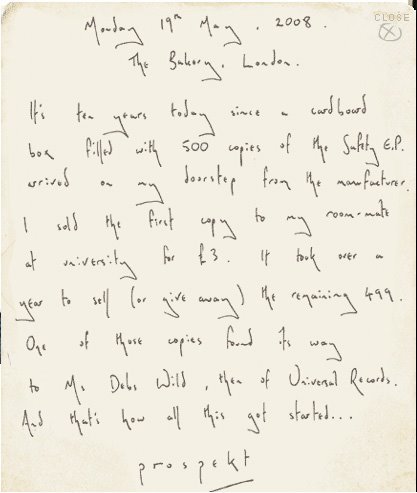 CLOSE
Monday 19th May, 2008.
The Bakery, London.
It's ten years today since a cardboard
box filled with 500 copies of the Safety E.P.
arrived on my doorstep from the manufacturer.
I sold the first copy to my room-mate
at university for £3. It took over a
year to sell (or give away) the remaining 499.
One of those copies found its way
to Ms Debs Wild, then of Universal Records.
And that's how all this got started...
prospekt